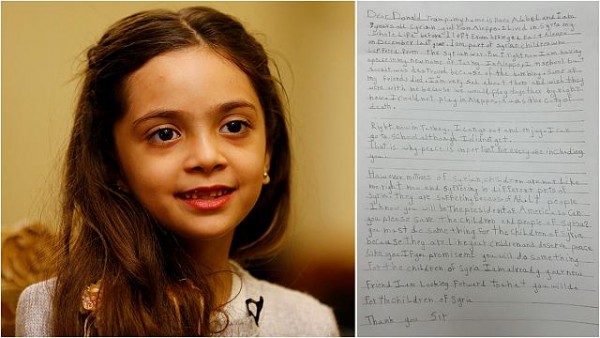 Dear Donald Trump my name is Bana Alabed and I am a
7 years old Syrian girl from Aleppo. I lived in Syria my
whole life before I left from besieged East Aleppo
on December last year. I am part of Syrian children who
suffered from the Syrian war. But right now I am having
a peace in my new home of Turkey. In Aleppo, I in school but
soon it was destroyed because of the bombing. Some of
my friends died. I am very sad about them and wish they
were with me because we would play together by right
now. I couldn't play in Appeppo, it was the city of
death.
Right now in Turkey, I can go out and enjoy. I can
go to school although I didn't yet.
That is why peace is important for everyone including
you.
However, millions of syrian children are not like
me right now and suffering in different parts of
Syria. they are suffering because of Adult people
I know you will be the president of America, so Can
you please save the children and people of Syria?
you must do something for the children of Syria
because they are like your children and deserve peace
like you. If you promise me you will do something
for the children of Syria I am already your new
friend. I am looking forward to what you will do
for the children of Syria
Thank you Sir